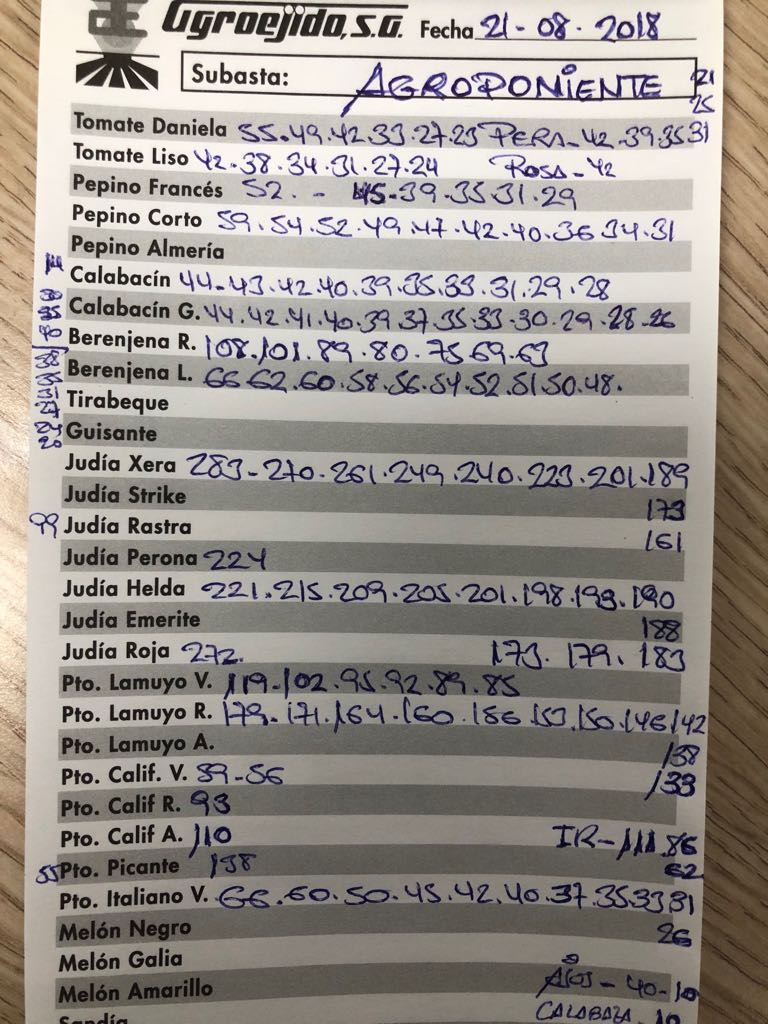 Agroejido, S.A. Fecha 21-08-2018
Subasta: AGROPONIENTE 21
25
Tomate Daniela 55.49.42.33.27.23 PERA-42.39.35 31
Tomate Liso 42.38.34.31.27.24 ROSA-42
Pepino Francés 52. - 45.39.35.31.29
Pepino Corto 59.54.52.49.47.42.40.36 34.31
Pepino Almería
Calabacín 44.43.42.40.39.35.33.31.29.28
Calabacín G. 44.42.41.40.39.37.35.33.30.29.28.26
Berenjena R. 108.101.89.80.75 69.63
Berenjena L. 66.62.60.58.56.54.52.51.50.48.
Tirabeque
Guisante
Judía Xera 283-270.261.249.240.223.201.189
Judía Strike 173
99 Judía Rastra 161
Judía Perona 224
Judía Helda 221.215.209.205.201.198.193.190
Judía Emerite 188
Judía Roja 272. 173. 179. 183
Pto. Lamuyo V. 119-102.95.92.89.85
Pto. Lamuyo R. 179.171.164.160.156.153.150.146 142
Pto. Lamuyo A. 138
Pto. Calif. V. 89-56 133
Pto. Calif R. 93
Pto. Calif A. 110 IR-111.86
55 Pto. Picante 138 62
Pto. Italiano V. 66.60.50.45.42.40.37.35 33 31
Melón Negro 26
Melón Galia
Melón Amarillo 40-10
Sandía CALABAZA 10